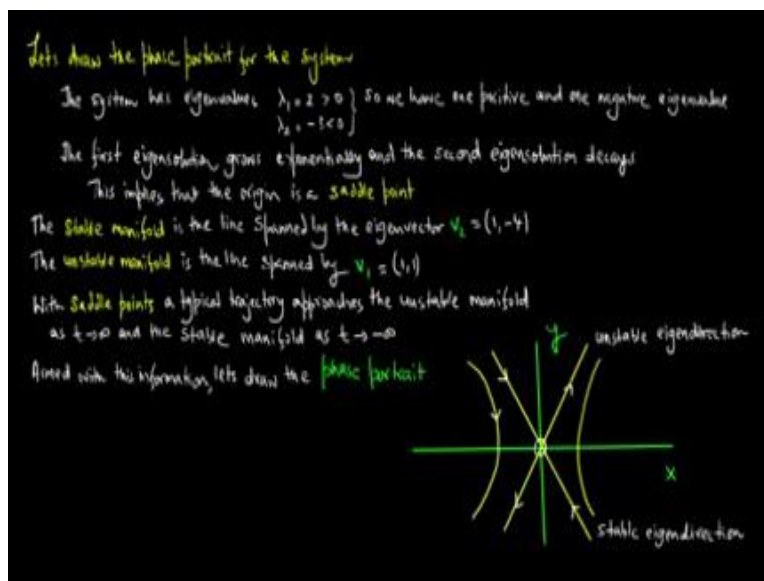 Lets draw the phase portrait for the system
The system has eigenvalues λ₁ = 2 > 0
λ₂ = -3 < 0 } so we have one positive and one negative eigenvalue
The first eigensolution grows exponentially and the second eigensolution decays
This implies that the origin is a saddle point
The stable manifold is the line spanned by the eigenvector v₂ = (1,-4)
The unstable manifold is the line spanned by v₁ = (1,1)
With saddle points a typical trajectory approaches the unstable manifold
as t→∞ and the stable manifold as t→-∞
Armed with this information, lets draw the phase portrait
y
unstable eigendirection
x
stable eigendirection